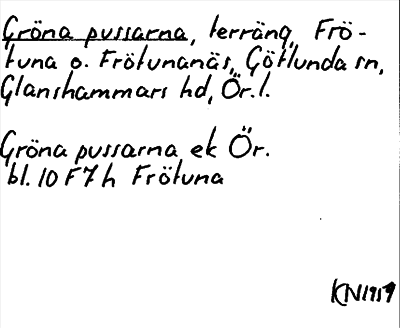 Gröna pussarna, terräng, Frö-
tuna o. Frötunanäs, Götlunda sn,
Glanshammars hd, Ör. l.
Gröna pussarna ek Ör.
bl. 10 F 7 h Frötuna
KN1959